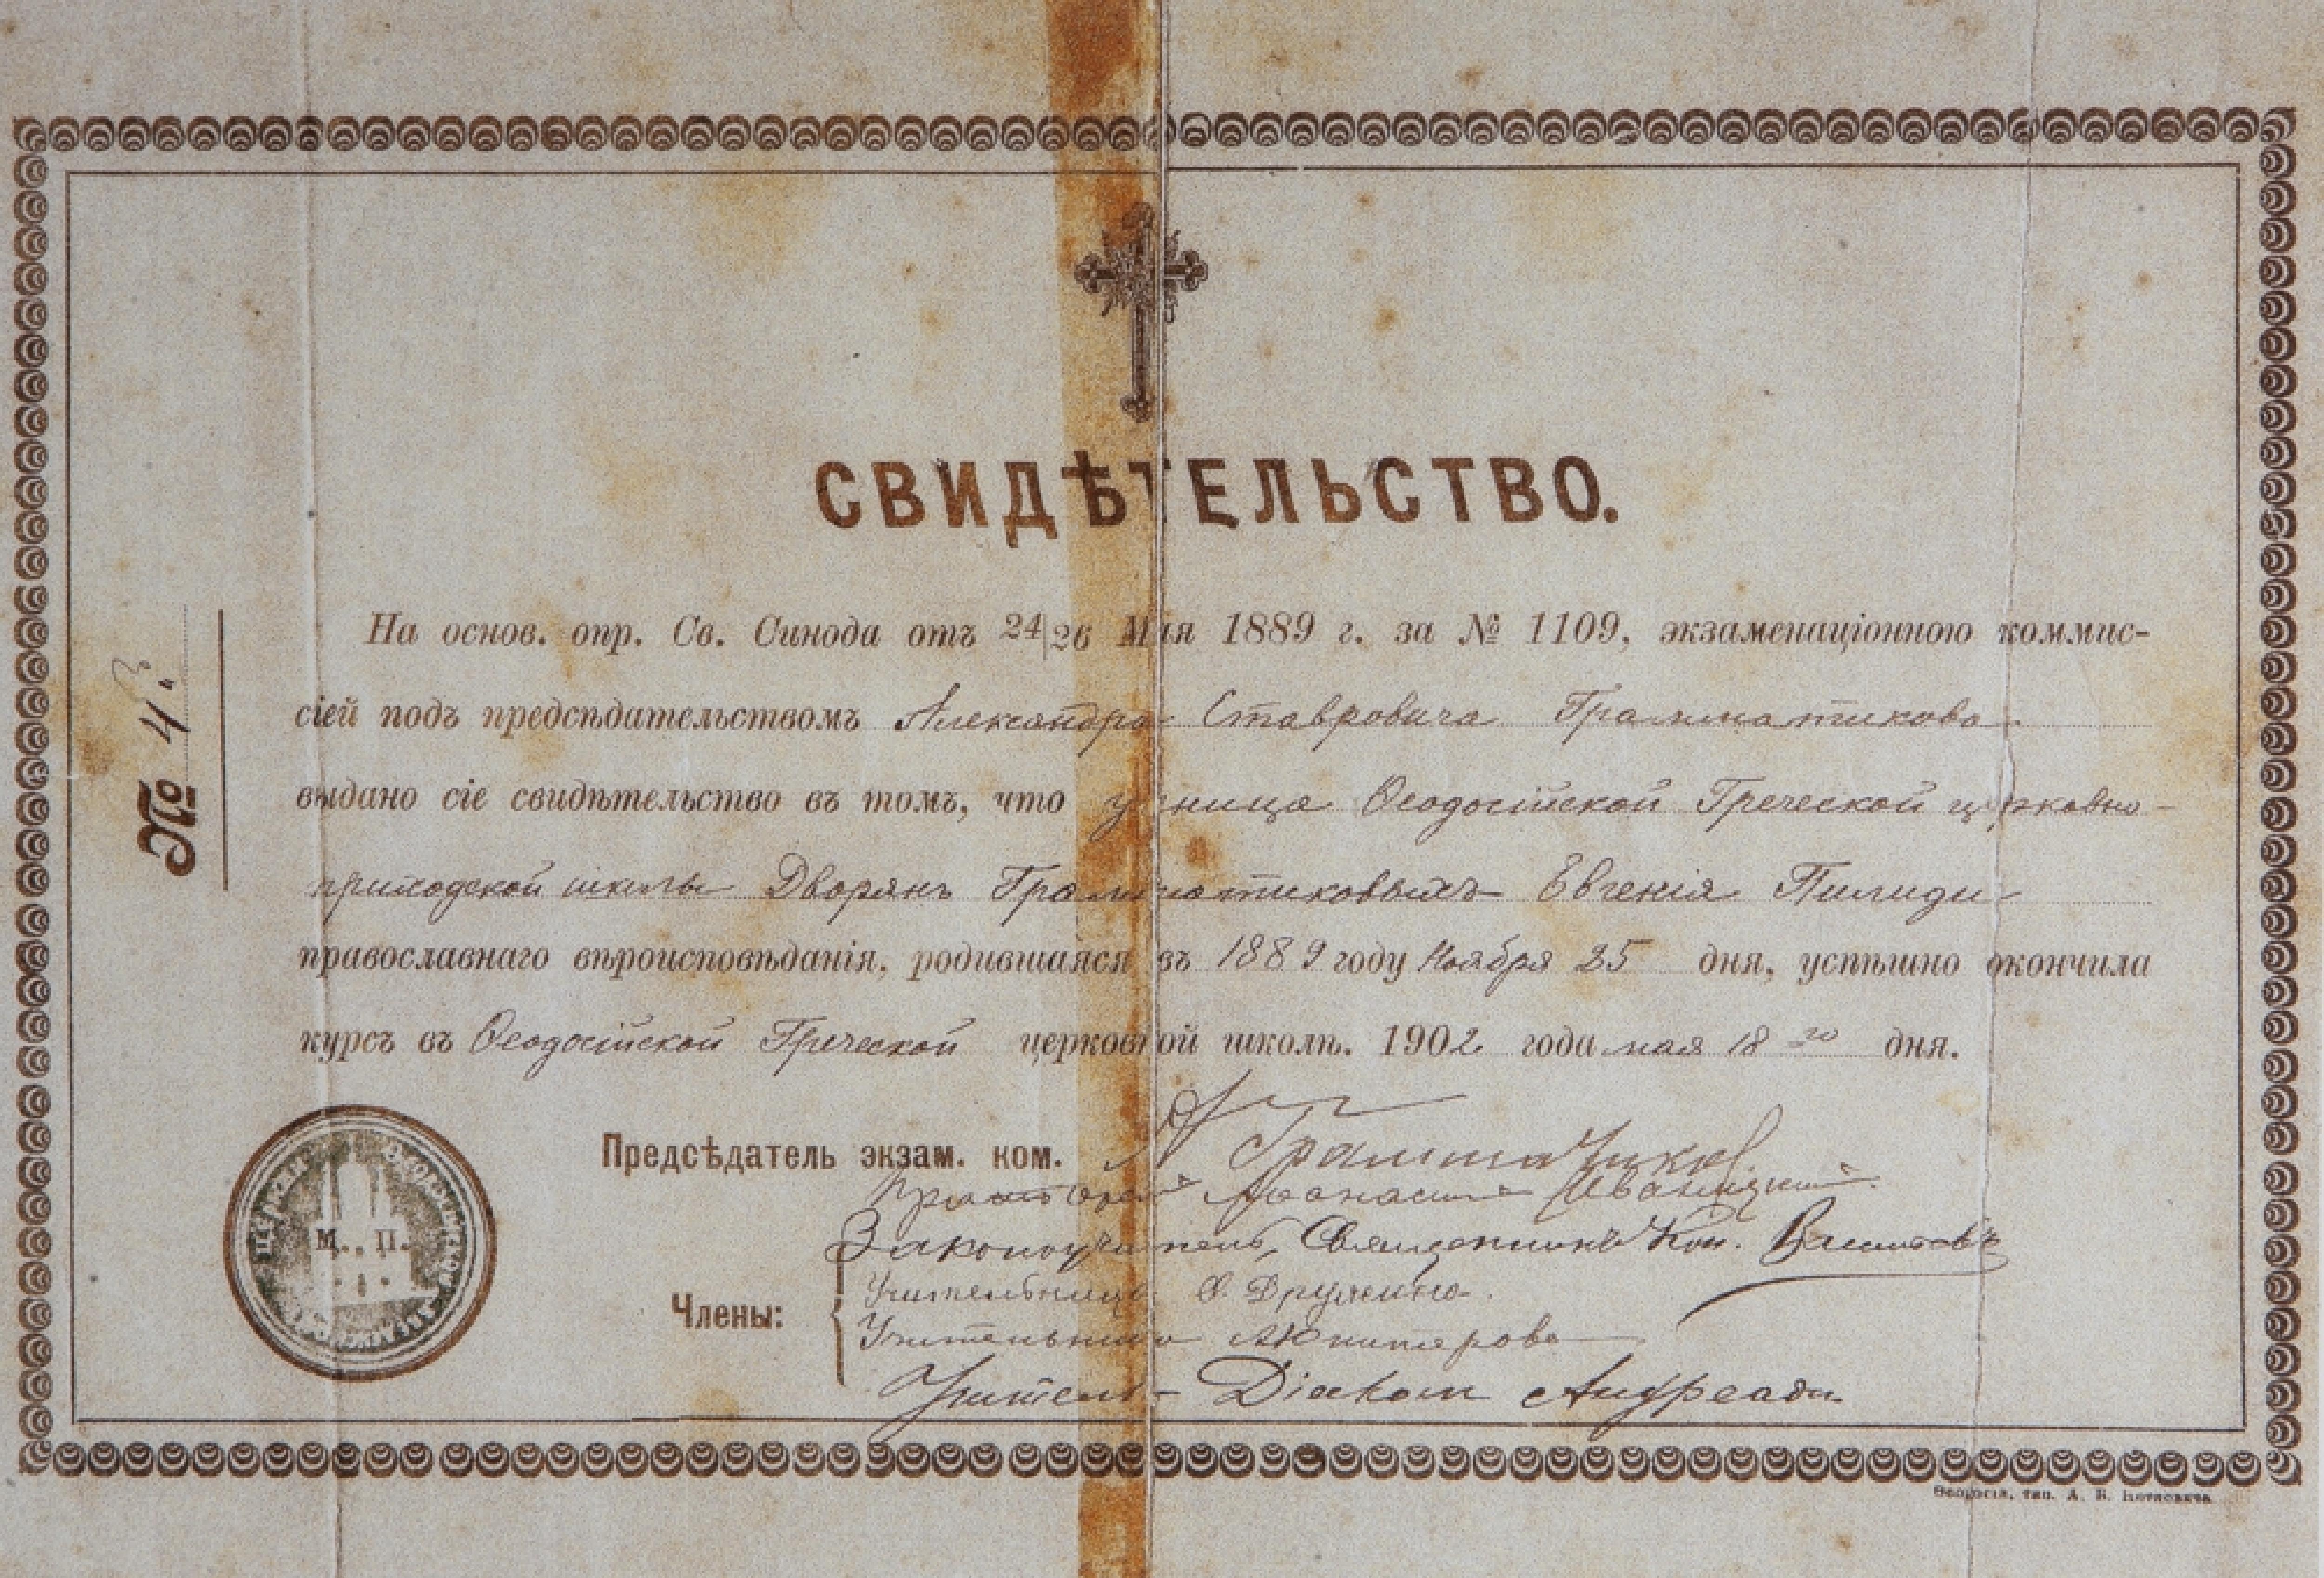 СВИДѢТЕЛЬСТВО.
№ 43.
На основ. опр. Св. Синода отъ 24/26 Мая 1889 г. за № 1109, экзаменаціонною коммис-
сіей подъ предсѣдательствомъ Александра Ставровича Грамматикова
выдано сіе свидѣтельство въ томъ, что ученица Ѳеодосійской Греческой церковно-
приходской школы Дворянъ Грамматиковыхъ Евгенія Пилиди
православнаго вѣроисповѣданія, родившаяся въ 1889 году Ноября 25 дня, успѣшно окончила
курсъ въ Ѳеодосійской Греческой церковной школѣ. 1902 года мая 18 дня.
Предсѣдатель экзам. ком. Грамматиковъ
Протоіерей Аѳанасій Иваницкій
Законоучитель, Священникъ Кон.
Члены:
Учительница Дружина.
Учительница
Учитель - Діаконъ Андреади
М. П.
Ѳеодосія, тип. А. В.